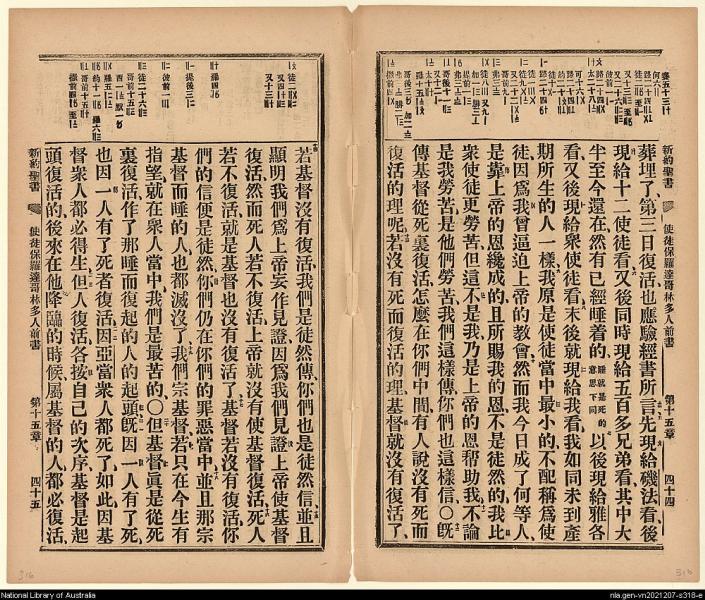 葬埋了第三日復活也應驗經書所言先現給磯法看後
現給十二使徒看又後同時現給五百多兄弟看其中大
半至今還在然有已經睡着的睡就是死的意思下同以後現給雅各
看又後現給衆使徒看末後就現給我看我如同未到產
期所生的人一樣我原是使徒當中最小的不配稱爲使
徒因爲我曾逼迫上帝的教會然而我今日成了何等人
是靠上帝的恩纔成的且所賜我的恩不是徒然的我比
衆使徒更勞苦但這不是我乃是上帝的恩幫助我不論
是我勞苦是他們勞苦我們這樣傳你們也這樣信〇旣
傳基督從死裏復活怎麽在你們中間有人說沒有死而
復活的理呢若沒有死而復活的理基督就沒有復活了
新約聖書 使徒保羅達哥林多人前書 第十五章 四十四
若基督沒有復活我們是徒然傳你們也是徒然信並且
顯明我們爲上帝妄作見證因爲我們見證上帝使基督
復活然而死人若不復活上帝就沒有使基督復活死人
若不復活就是基督也沒有復活了基督若沒有復活你
們的信便是徒然你們仍在你們的罪惡當中並且那宗
基督而睡的人也都滅沒了我們宗基督若只在今生有
指望就在衆人當中我們是最苦的〇但基督眞是從死
裏復活作了那睡而復起的人的起頭旣因一人有了死
也因一人有了死者復活因亞當衆人都死了如此因基
督衆人都必得生但人復活各按自己的次序基督是起
頭復活的後來在他降臨的時候屬基督的人都必復活
新約聖書 使徒保羅達哥林多人前書 第十五章 四十五
National Library of Australia
nla.gen-vn2021207-s318-e